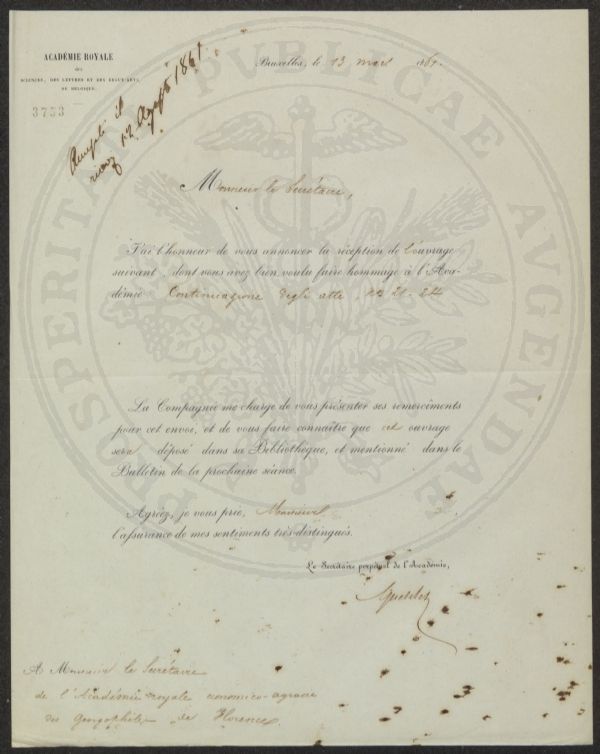 ACADÉMIE ROYALE
DES
SCIENCES, DES LETTRES ET DES BEAUX-ARTS
DE BELGIQUE.
3753
Bruxelles, le 13 mars 1861.
12 Agosto 1861
PROSPERITATI PVBLICAE AVGENDAE
Monsieur le Secrétaire,
J'ai l'honneur de vous annoncer la réception de l'ouvrage
suivant, dont vous avez bien voulu faire hommage à l'Aca-
démie Continuazione degli atti, no 21-24
La Compagnie me charge de vous présenter ses remercîments
pour cet envoi, et de vous faire connaître que cet ouvrage
sera déposé dans sa Bibliothèque, et mentionné dans le
Bulletin de la prochaine séance.
Agréez, je vous prie, Monsieur
l'assurance de mes sentiments très-distingués.
Le Secrétaire perpétuel de l'Académie,
Quetelet
A Monsieur le Secrétaire
de l'Académie royale economico-agraria
des georgophiles de Florence.